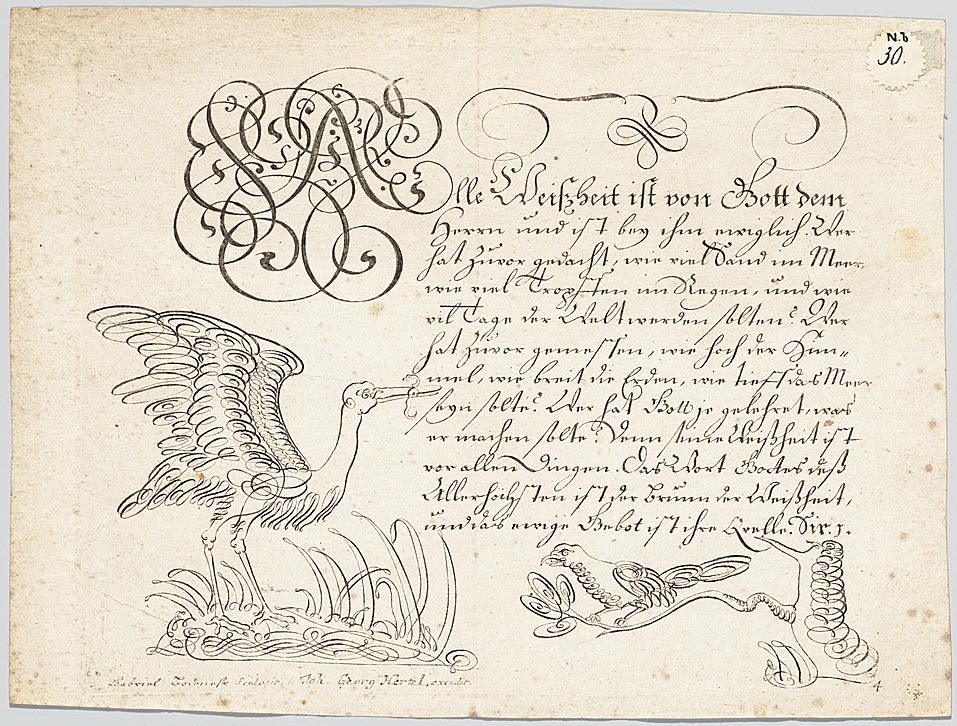 N. 8
30.
Alle Weißheit ist von Gott dem
Herrn und ist bey ihm ewiglich. Wer
hat zuvor gedacht, wie viel Sand im Meer,
wie viel Tropffen im Regen, und wie
vil Tage der Welt werden solten? Wer
hat zuvor gemessen, wie hoch der Him=
mel, wie breit die Erden, wie tieff das Meer
seyn solte? Wer hat Gott je gelehret, was
er machen solte? Denn seine Weißheit ist
vor allen Dingen. Das Wort Gottes deß
Allerhöchsten ist der Brunn der Weißheit,
und das ewige Gebot ist ihre Quelle. Sir. 1.
Gabriel Bodenehr Sculpsit. Joh. Georg Hertel, excudit.
4